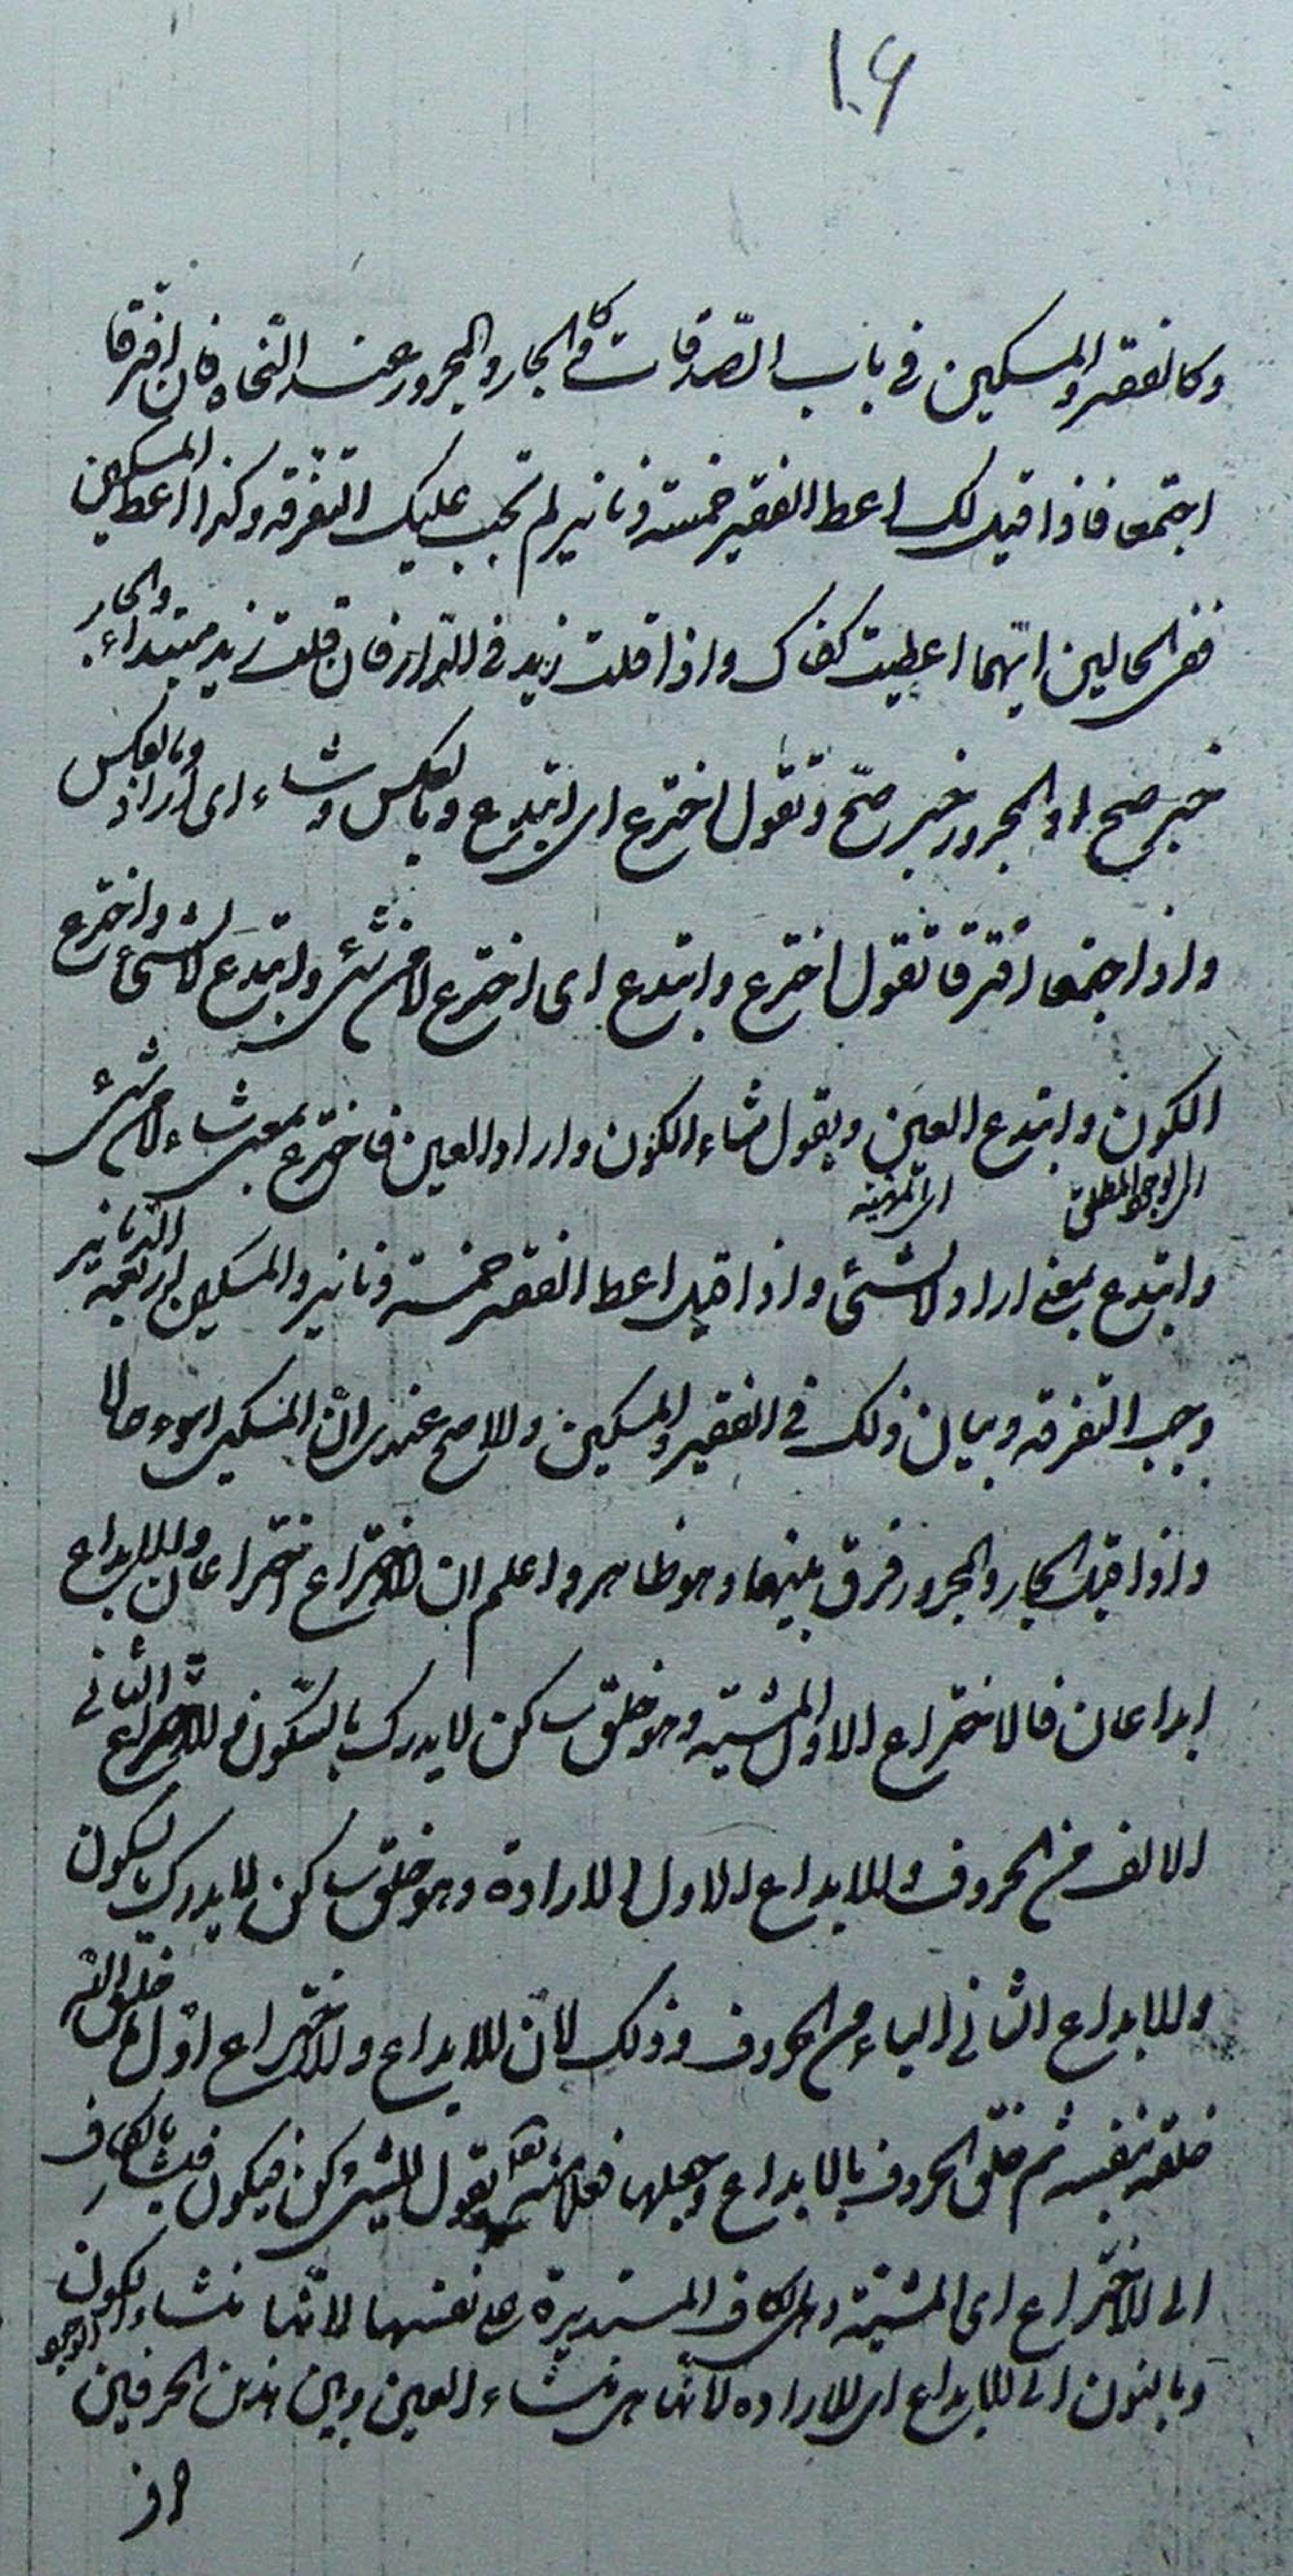 ١٠۶
وكالفقير والمسكين فى باب الصّدقات وكالجار والمجرور عند النّحاة فان افترقا
اجتمعا فاذا قيل لك اعط الفقير خمسة دنانير لم تجب عليك التفرقه وكذا اعط المسكين
ففى الحالين ايّهما اعطيت كفاك واذا قلت زيد فى الدّار فان قلت زيد مبتداء والجار
خبر صح او المجرور خبر صحّ وتقول اخترع اى ابتدع وبالعكس وشاء اى اراد وبالعكس
واذا اجتمعا افترقا تقول اخترع وابتدع اى اخترع لا من شئ وابتدع لا لشئ واخترع
الكون وابتدع العين ويقول شاء الكون واراد العين فاخترع بمعنى شاء لا من شئ
اى الوجود المطلق
اى المهيّة
وابتدع بمعنى اراد لا لشئ واذا قيل اعط الفقير خمسة دنانير والمسكين اربعة الدّنانير
وجب التفرقه وبيان ذلك فى الفقير والمسكين والاصح عندى انّ المسكين اسوء حالا
واذا قيل الجار والمجرور فرق بينهما وهو ظاهر واعلم ان الاختراع اختراعان والابداع
ابداعان فالاختراع الاول المشيّه وهو خلق ساكن لا يدرك بالسّكون والاختراع الثانى
الالف من الحروف والابداع الاول الارادة وهو خلق ساكن لا يدرك بالسكون
والابداع الثانى الباء من الحروف وذلك لانّ الابداع والاختراع اوّل ما خلق اللّه
خلقه بنفسه ثم خلق الحروف بالابداع وجعلها فعلا منه يقول للشئ كن فيكون فيشار بالكاف
الى الاختراع اى المشيّة وهى الكاف المستديرة على نفسها لانّها منشاء الكون
الوجود
وبالنون الى الابداع اى الاراده لانّها هى منشاء العين وبين هذين الحرفين